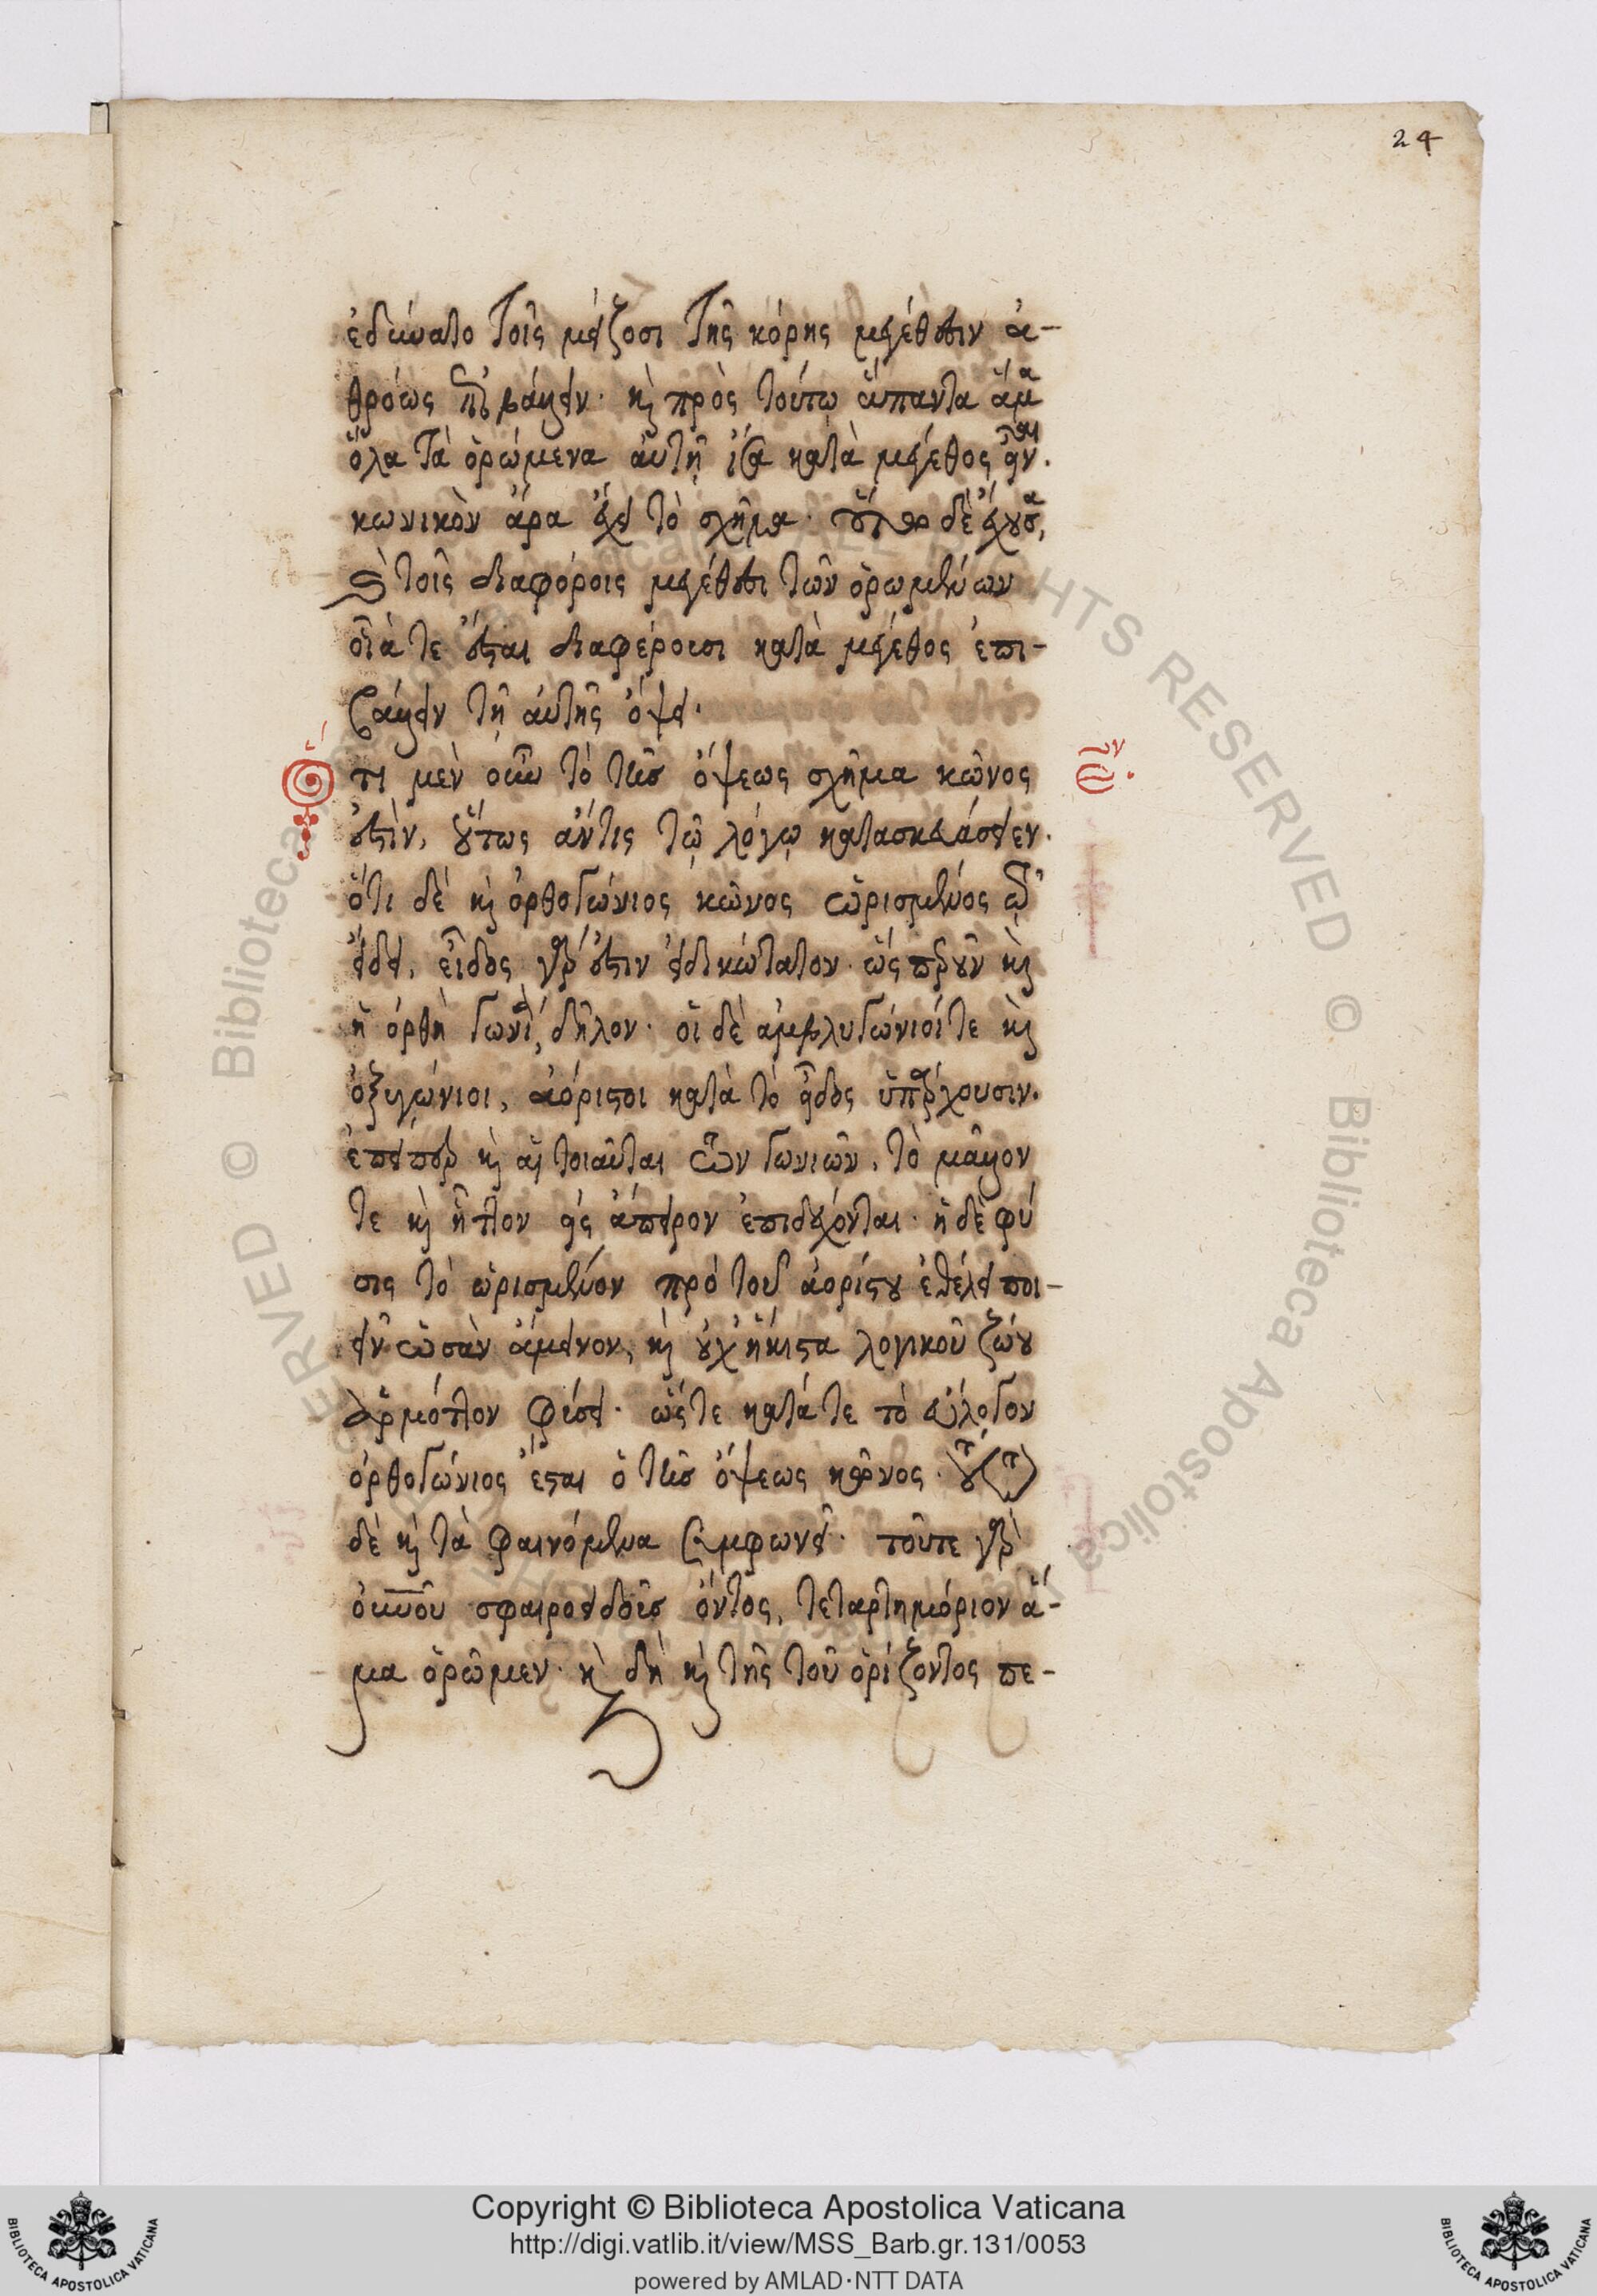 24
ἐδύνατο τοῖς μείζοσι τῆς κόρης μεγέθεσιν ἀ-
θρόως ἐπιβάλλειν· καὶ πρὸς τούτῳ ἅπαντα ἅμα
ὅλα τὰ ὁρώμενα αὐτῇ ἴσα κατὰ μέγεθος εἶναι.
κωνικὸν ἄρα ἔχει τὸ σχῆμα· τοῦτο δὲ ἔχουσα,
τοῖς διαφόροις μεγέθεσι τῶν ὁρωμένων
οἷά τε ἔσται διαφέρουσι κατὰ μέγεθος ἐπι-
βάλλειν τῇ αὐτῆς ὄψει.
Ὅτι μὲν οὖν τὸ τῆς ὄψεως σχῆμα κῶνος
ἐστὶν, οὕτως ἄν τις τῷ λόγῳ κατασκευάσειεν.
ὅτι δὲ καὶ ὀρθογώνιος κῶνος ὡρισμένος
εἴδει, εἶδος γάρ ἐστιν εἰδικώτατον· ὥσπερ οὖν καὶ
ἡ ὀρθὴ γωνία, δῆλον· οἱ δὲ ἀμβλυγώνιοί τε καὶ
ὀξυγώνιοι, ἀόριστοι κατὰ τὸ εἶδος ὑπάρχουσιν.
ἐπείπερ καὶ αἱ τοιαῦται τῶν γωνιῶν, τὸ μᾶλλον
τε καὶ ἧττον εἰς ἄπειρον ἐπιδέχονται· ἡ δὲ φύ
σις τὸ ὡρισμένον πρὸ τοῦ ἀορίστου ἐθέλει ποι-
εῖν ὡσὰν ἄμεινον, καὶ οὐχ ἥκιστα λογικοῦ ζώου
ἁρμόττον φύσει· ὥστε κατά τε τὸ εὔλογον
ὀρθογώνιος ἔσται ὁ τῆς ὄψεως κῶνος· τούτῳ
δὲ καὶ τὰ φαινόμενα συμφωνεῖ· τοῦ τε γὰρ
οὐρανοῦ σφαιροειδοῦς ὄντος, τεταρτημόριον ἅ-
μα ὁρῶμεν· καὶ δὴ καὶ τῆς τοῦ ὁρίζοντος πε-
© Biblioteca Apostolica Vaticana ALL RIGHTS RESERVED
Copyright © Biblioteca Apostolica Vaticana
http://digi.vatlib.it/view/MSS_Barb.gr.131/0053
powered by AMLAD·NTT DATA
BIBLIOTECA APOSTOLICA VATICANA
BIBLIOTECA APOSTOLICA VATICANA